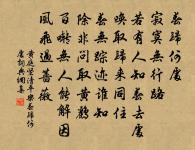 春歸何處
寂寞無行路
若有人知春去處
喚取歸來同住
春無踪跡誰知
除非問取黃鸝
百囀無人能解因
風飛過薔薇
黃庭堅清平樂春歸何
處詞典網集